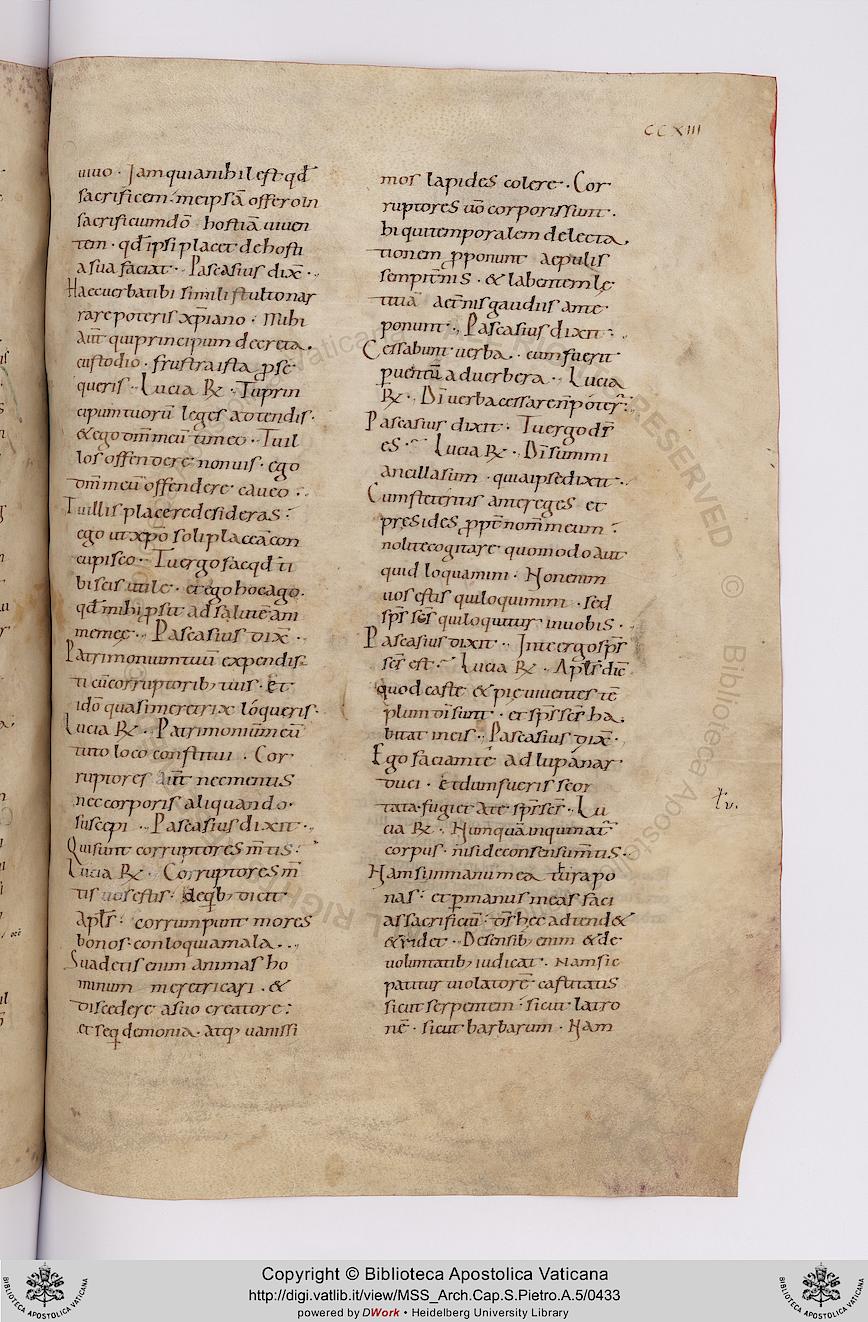 CCXIII
uiuo · Iam quia nihil est qđ
sacrificem · meipsā offero in
sacrificium dō · hostiā uiuen
tem · qđ ipsi placet de hosti
a sua faciat · Pascasius dix̄ ·
Haec uerba tibi simili stulto nar
rare poteris xp̄iano · Mihi
aūt qui principum decreta
custodio · frustra ista p̄se
queris · Lucia R̄ · Tu prin
cipum tuorū leges adtendis ·
& ego dn̄m meū timeo · Tu il
los offendere non uis · ego
dn̄m meū offendere caueo ·
Tu illis placere desideras :
ego ut xp̄o soli placeā con
cupisco · Tu ergo fac qđ ti
bi scis utile · et ego hoc ago ·
qđ mihi p̄sit ad salutē ani
me meę · Pascasius dix̄ ·
Patrimonium tuū expendis
ti cū corruptorib; tuis · et
idō quasi meretrix lóqueris ·
Lucia R̄ · Patrimoniū meū
tuto loco constitui · Cor
ruptores aūt nec mentis
nec corporis aliquando ·
suscepi · Pascasius dixit ·
Qui sunt corruptores m̄tis :
Lucia R̄ · Corruptores m̄
tis uos estis · de qb; dicit
apłs · corrumpunt mores
bonos · conloquia mala ·
Suadetis enim animas ho
minum meretricari · &
discedere a suo creatore :
et seq̄ demonia · atq; uanissi
mos lapides colere · Cor
ruptores uō corporis sunt ·
hi qui temporalem delecta
tionem p̄ponunt aepulis
sempit̄nis · & labentem lę
titiā aet̄nis gaudiis ante
ponunt · Pascasius dixit ·
Cessabunt uerba · cum fuerit
p̄uentū ad uerbera · Lucia
R̄ · Dī uerba cessare n̄ poter̄ :
Pascasius dixit · Tu ergo dſ
es · Lucia R̄ · Dī summi
ancilla sum · quia ipse dixit ·
Cum steteritis ante reges et
presides p̄pt̄ nomen meum :
nolite cogitare quomodo aut
quid loquamini · Non enim
uos estis qui loquimini · sed
sp̄s sc̄s qui loquitur in uobis ·
Pascasius dixit · In te ergo sp̄s
sc̄s est · Lucia R̄ · Apłs dic̄
quod caste & pię uiuentes tē
plum dī sunt · et sp̄s sc̄s ha
bitat in eis · Pascasius dix̄ ·
Ego faciam te ad lupanar
duci · et dum fueris scor
tata · fugiet a te sp̄s sc̄s · Lu
cia R̄ · Numquā inquinat̄
corpus · nisi de consensu m̄tis ·
Nam si in manu mea tura po
nas : et p̄ manus meas faci
as sacrificiū · dſ hec adtend&
& ridet · De sensib; enim & de
uoluntatib; iudicat · Nam sic
patitur uiolatorē castitatis
sicut serpentem · sicut latro
nē · sicut barbarum · Nam
Copyright © Biblioteca Apostolica Vaticana
http://digi.vatlib.it/view/MSS_Arch.Cap.S.Pietro.A.5/0433
powered by DWork • Heidelberg University Library